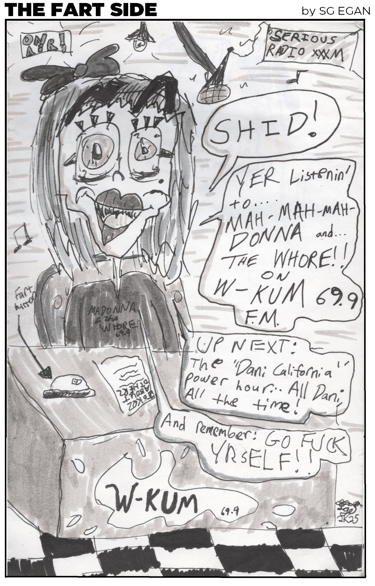 THE FART SIDE
by SG EGAN
SERIOUS
RADIO XXXM
SHID!
YER Listenin'
to....
MAH-MAH-MAH-
DONNA and...
THE WHORE!!
ON
W-KUM 69.9
F.M.
fart
button
MADONNA
& the
WHORE!
69.9
UP NEXT:
The "Dani California"
power hour.. All Dani,
All the time!
And remember: GO FUCK
YRSELF!!
W-KUM 69.9